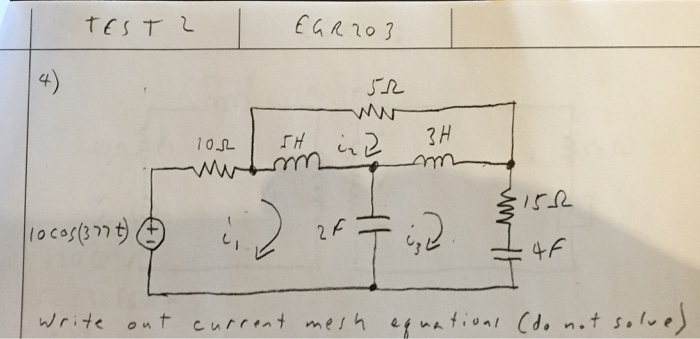 TEST 2 EGR203
4)
5Ω
10Ω 5H i₂ 3H
15Ω
10cos(377t) + - i₁ 2F i₃ 4F
Write out current mesh equations (do not solve)